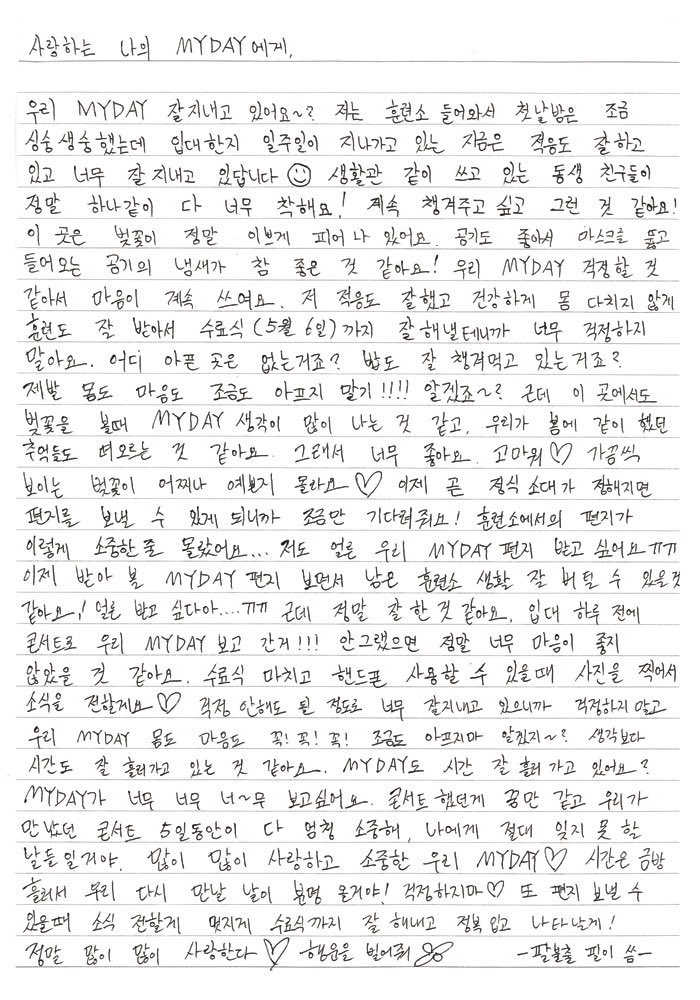 사랑하는 나의 MYDAY에게,
우리 MYDAY 잘지내고 있어요~? 저는 훈련소 들어와서 첫날밤은 조금
싱숭생숭했는데 입대한지 일주일이 지나가고 있는 지금은 적응도 잘하고
있고 너무 잘지내고 있답니다 ☺ 생활관 같이 쓰고 있는 동생 친구들이
정말 하나같이 다 너무 착해요! 계속 챙겨주고 싶고 그런 것 같아요!
이 곳은 벚꽃이 정말 이쁘게 피어나 있어요. 공기도 좋아서 마스크를 뚫고
들어오는 공기의 냄새가 참 좋은 것 같아요! 우리 MYDAY 걱정할 것
같아서 마음이 계속 쓰여요. 저 적응도 잘했고 건강하게 몸 다치지 않게
훈련도 잘 받아서 수료식(5월 6일)까지 잘해낼테니까 너무 걱정하지
말아요. 어디 아픈 곳은 없는거죠? 밥도 잘 챙겨먹고 있는거죠?
제발 몸도 마음도 조금도 아프지 말기!!!! 알겠죠~? 근데 이 곳에서도
벚꽃을 볼때 MYDAY 생각이 많이 나는 것 같고, 우리가 봄에 같이 했던
추억들도 떠오르는 것 같아요. 그래서 너무 좋아요. 고마워♡ 가끔씩
보이는 벚꽃이 어찌나 예쁜지 몰라요♡ 이제 곧 정식 소대가 정해지면
편지를 보낼 수 있게 되니까 조금만 기다려줘요! 훈련소에서의 편지가
이렇게 소중한줄 몰랐어요... 저도 얼른 우리 MYDAY 편지 받고 싶어요ㅠㅠ
이제 받아 볼 MYDAY 편지 보면서 남은 훈련소 생활 잘 버틸 수 있을것
같아요! 얼른 받고 싶다아....ㅠㅠ 근데 정말 잘한 것 같아요. 입대 하루 전에
콘서트로 우리 MYDAY 보고 간거!!! 안그랬으면 정말 너무 마음이 좋지
않았을 것 같아요. 수료식 마치고 핸드폰 사용할 수 있을때 사진을 찍어서
소식을 전할게요♡ 걱정 안해도 될 정도로 너무 잘지내고 있으니까 걱정하지 말고
우리 MYDAY 몸도 마음도 꼭!꼭!꼭! 조금도 아프지마 알겠지~? 생각보다
시간도 잘 흘러가고 있는 것 같아요. MYDAY도 시간 잘 흘러 가고 있어요?
MYDAY가 너무 너무 너~무 보고싶어요. 콘서트 했던게 꿈만 같고 우리가
만났던 콘서트 5일동안이 다 엄청 소중해, 나에게 절대 잊지 못 할
날들일거야. 많이 많이 사랑하고 소중한 우리 MYDAY♡ 시간은 금방
흘러서 우리 다시 만날 날이 분명 올거야! 걱정하지마♡ 또 편지 보낼 수
있을때 소식 전할게 멋지게 수료식까지 잘 해내고 정복 입고 나타날게!
정말 많이 많이 사랑한다♡ 행운을 빌어줘 -팔불출 필이 씀-